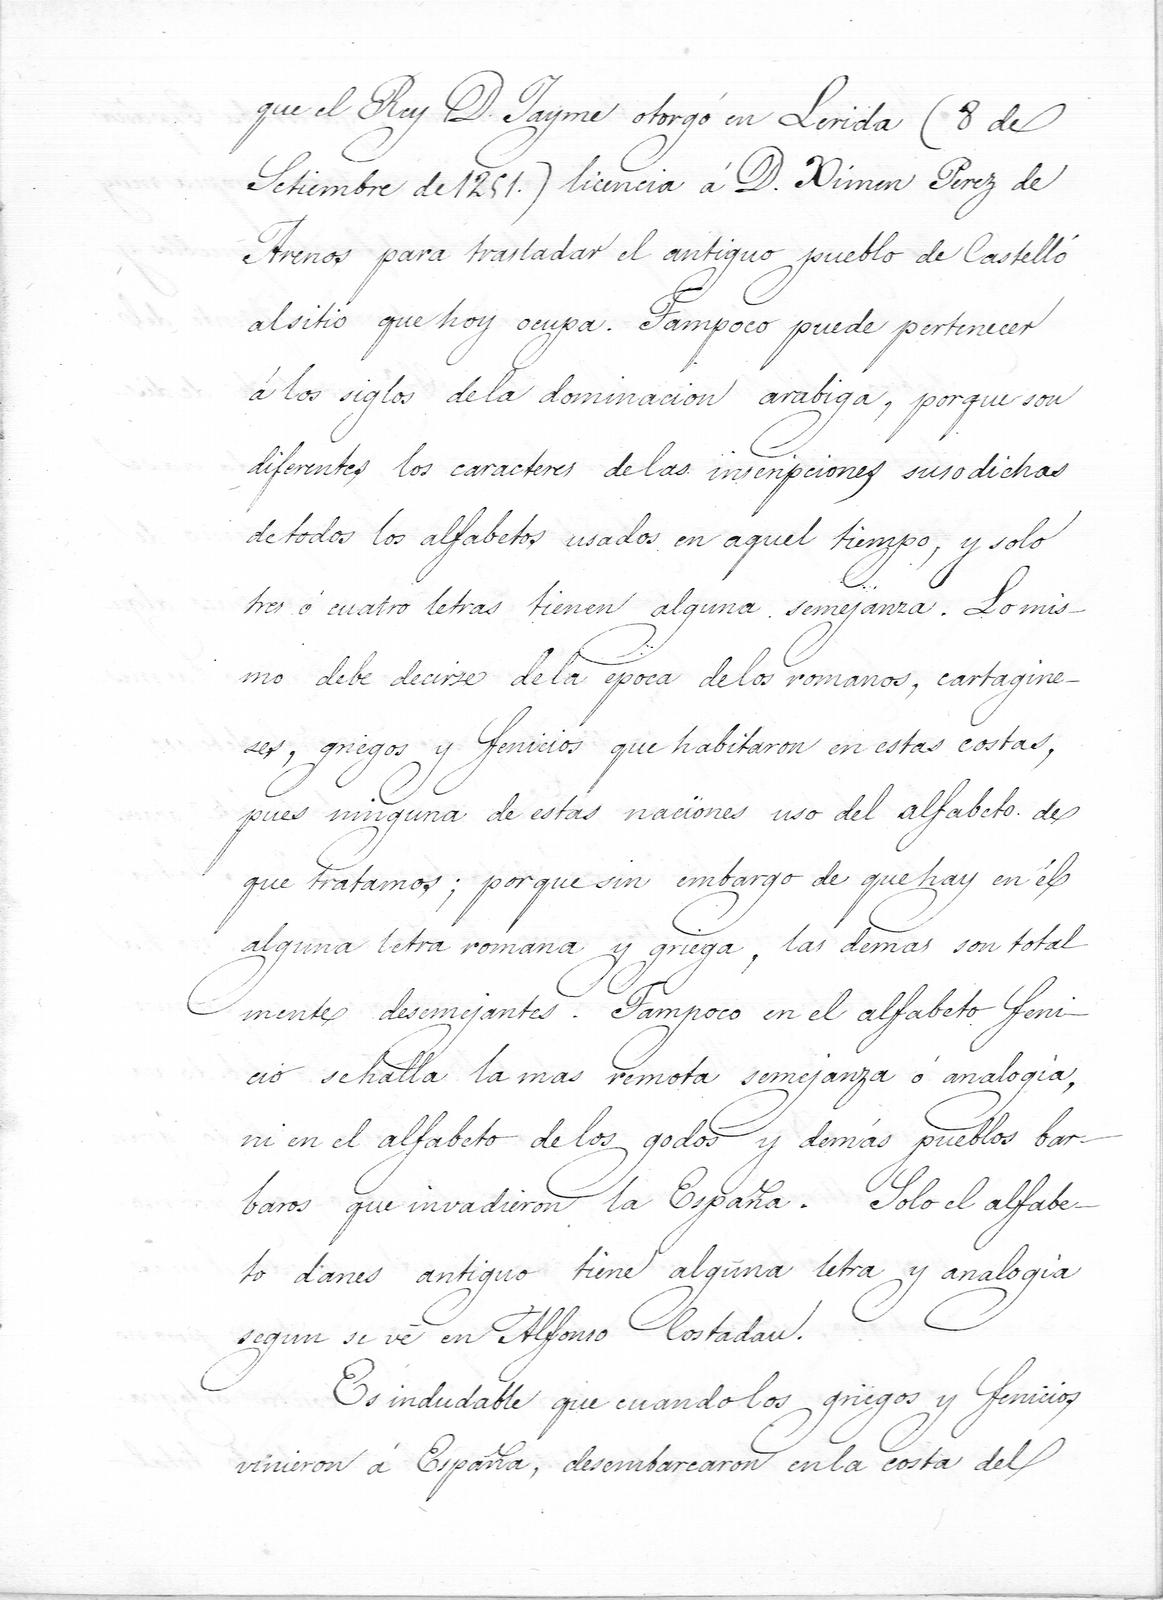 que el Rey D. Jayme otorgó en Lerida (8 de
Setiembre de 1251.) licencia á D. Ximen Perez de
Arenos para trasladar el antiguo pueblo de Castelló
al sitio que hoy ocupa. Tampoco puede pertenecer
á los siglos de la dominacion arabiga, porque son
diferentes los caracteres de las inscripciones susodichas
de todos los alfabetos usados en aquel tiempo, y solo
tres ó cuatro letras tienen alguna semejanza. Lo mis-
mo debe decirse de la epoca de los romanos, cartagine-
ses, griegos y fenicios que habitaron en estas costas,
pues ninguna de estas naciones uso del alfabeto de
que tratamos; porque sin embargo de que hay en él
alguna letra romana y griega, las demas son total
mente desemejantes. Tampoco en el alfabeto feni-
cio se halla la mas remota semejanza ó analogia,
ni en el alfabeto de los godos y demás pueblos bar-
baros que invadieron la España. Solo el alfabe-
to danes antiguo tiene alguna letra y analogia
segun se vé en Alfonso Costadau.
Es indudable que cuando los griegos y fenicios
vinieron á España, desembarcaron en la costa del